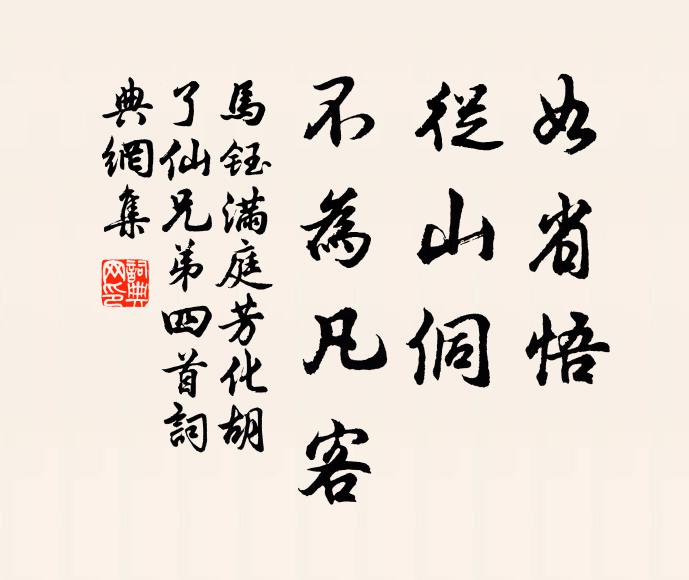 如省悟
從山侗
不為凡客
馬鈺滿庭芳化胡
了仙兄弟四首詞
典網集
詞典网印